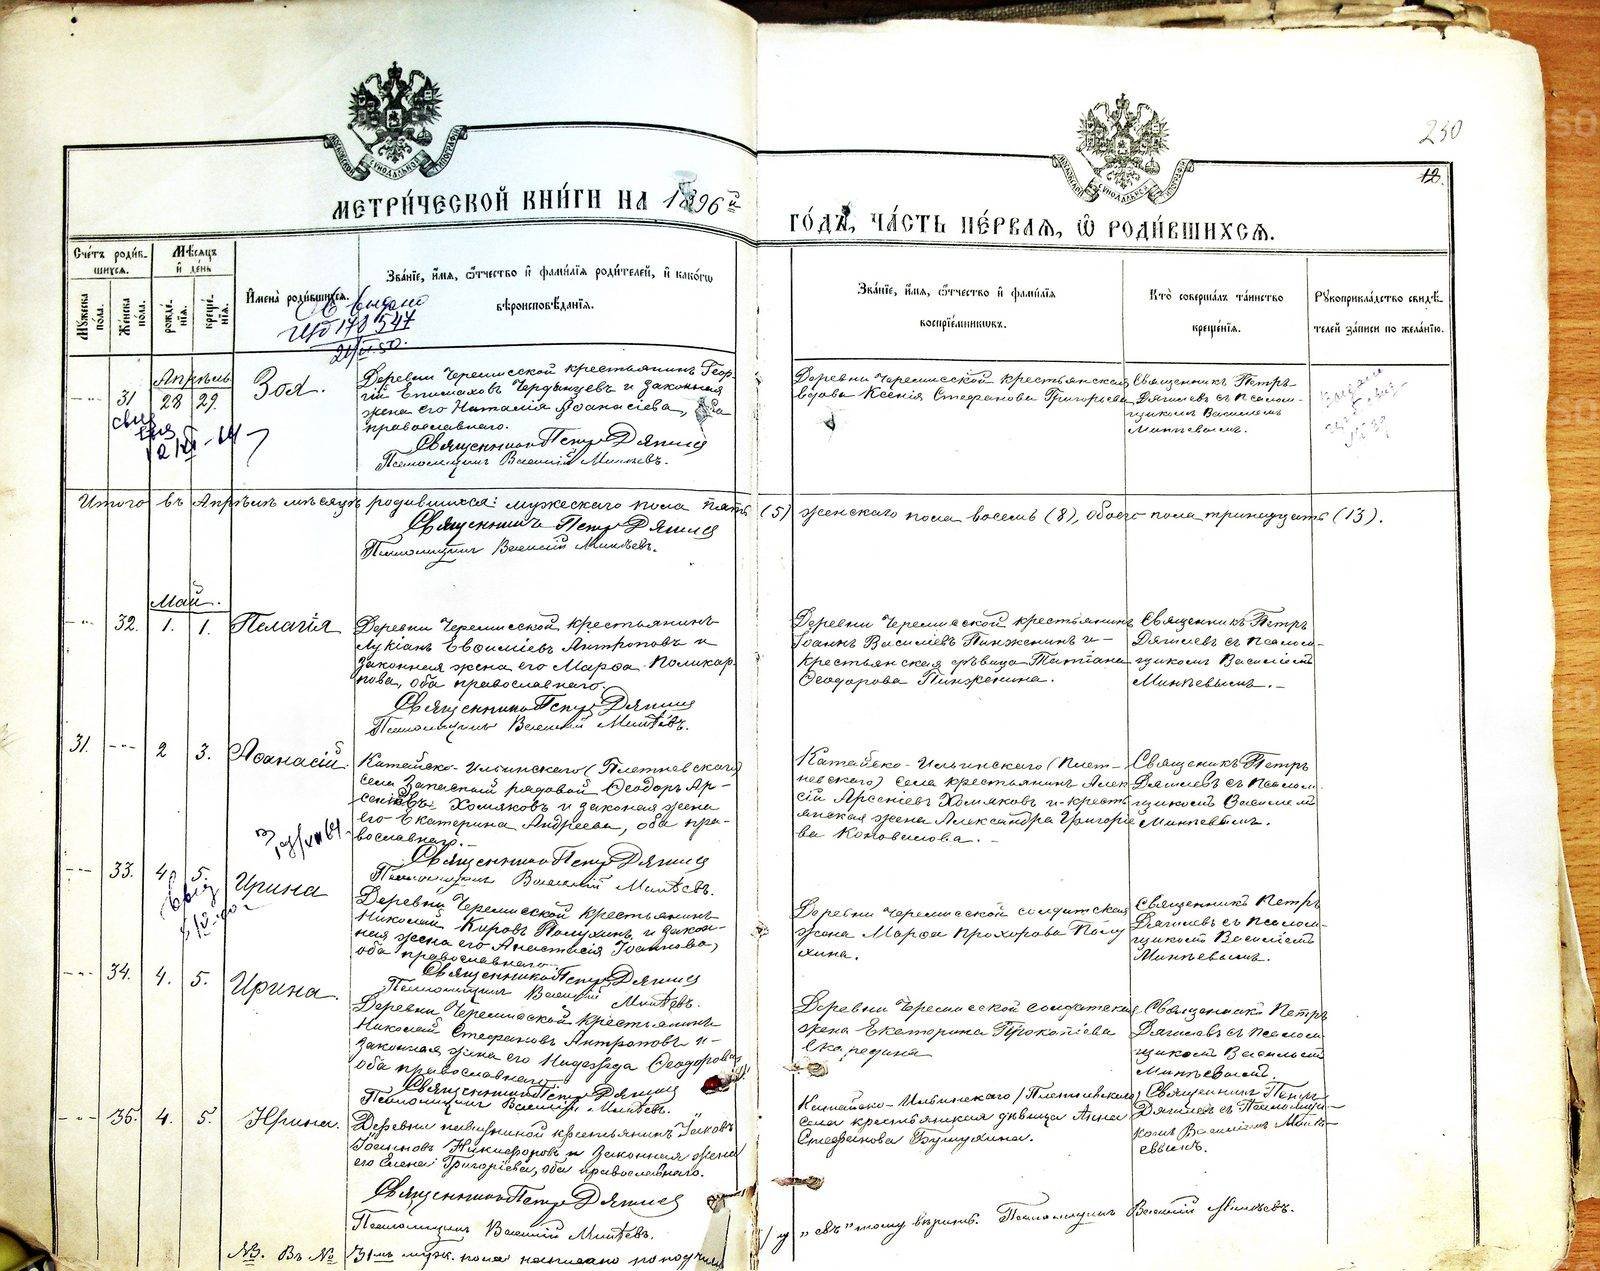 230
12.
МЕТРИ́ЧЕСКОЙ КНИ́ГИ НА 1896й
ГО́ДЪ, ЧА́СТЬ ПЕ́РВАЯ, Ѿ РОДИ́ВШИХСЯ.
Сче́тъ роди́в-
шихся.
Му́жеска по́ла.
Же́нска по́ла.
Мѣ́сяцъ
и де́нь
рожде́-
нїя.
креще́-
нїя.
Имена̀ роди́вшихся.
Зва́нїе, и́мя, ѻ́тчество и фами́лїя роди́телей, и како́гѡ
вѣроисповѣ́данїя.
Зва́нїе, и́мя, ѻ́тчество и фами́лїя
воспрїе́мниковъ.
Кто̀ соверша́лъ та́инство
креще́нїя.
Рукоприкла́дство свидѣ́-
телей за́писи по жела́нїю.
Апрѣль
31
28
29.
Зоя.
Деревни Черемисской крестьянинъ Геор-
гій Епимаховъ Чердынцевъ и законная
жена его Наталія Аѳанасіева, оба
православнаго.
Священникъ Петръ Дягилев
Псаломщикъ Василій Минѣевъ.
Деревни Черемисской крестьянская
вдова Ксенія Стефанова Григорьева
Священникъ Петръ
Дягилевъ съ псалом-
щикомъ Василіемъ
Минѣевымъ.
Итого въ Апрѣлѣ мѣсяцѣ родившихся: мужескаго пола пять (5) женскаго пола восемь (8), обоего пола тринадцать (13).
Священникъ Петръ Дягилев
Псаломщикъ Василій Минѣевъ.
Май.
32.
1.
1.
Пелагія
Деревни Черемисской крестьянинъ
Лукіанъ Евѳиміевъ Антроповъ и
законная жена его Марѳа Поликар-
пова, оба православнаго.
Священникъ Петръ Дягилев
Псаломщикъ Василій Минѣевъ.
Деревни Черемисской крестьянинъ
Іоаннъ Василіевъ Пинженинъ и
крестьянская дѣвица Татіана
Ѳеодорова Пинженина.
Священникъ Петръ
Дягилевъ съ псалом-
щикомъ Василіемъ
Минѣевымъ.
31.
2
3.
Аѳанасій
Катайско-Ильинскаго (Плетневскаго)
села Запасный рядовой Ѳеодоръ Ар-
сеніевъ Хомяковъ и законная жена
его Екатерина Андреева, оба пра-
вославнаго.
Священникъ Петръ Дягилев
Псаломщикъ Василій Минѣевъ.
Катайско-Ильинскаго (Плет-
невскаго) села крестьянинъ Алек-
сій Арсеніевъ Хомяковъ и кресть-
янская жена Александра Григоріе-
ва Коновалова.
Священникъ Петръ
Дягилевъ съ псалом-
щикомъ Василіемъ
Минѣевымъ.
33.
4
5.
Ирина
Деревни Черемисской крестьянинъ
Николай Кировъ Полухинъ и закон-
ная жена его Анастасія Іоаннова,
оба православнаго.
Священникъ Петръ Дягилев
Псаломщикъ Василій Минѣевъ.
Деревни Черемисской солдатская
жена Марѳа Прохорова Полу-
хина.
Священникъ Петръ
Дягилевъ съ псалом-
щикомъ Василіемъ
Минѣевымъ.
34.
4.
5.
Ирина.
Деревни Черемисской крестьянинъ
Николай Стефановъ Антроповъ и
законная жена его Надежда Ѳеодорова
оба православнаго.
Священникъ Петръ Дягилев
Псаломщикъ Василій Минѣевъ.
Деревни Черемисской солдатская
жена Екатерина Прокопіева
Священникъ Петръ
Дягилевъ съ псалом-
щикомъ Василіемъ
Минѣевымъ.
35.
4.
5.
Ирина.
крестьянинъ Іаковъ
Іоанновъ Никифоровъ и законная жена
его Елена Григоріева, оба православнаго.
Священникъ Петръ Дягилев
Псаломщикъ Василій Минѣевъ.
Катайско-Ильинскаго (Плетневскаго)
села крестьянская дѣвица Анна
Стефанова Бушуихина.
Священникъ Петръ
Дягилевъ съ Псаломщи-
комъ Василіемъ Минѣ-
евымъ.
№ 31мъ муж. пола написано по подчищ
„евъ“ тому вѣрить. Псаломщикъ Василій Минѣевъ.